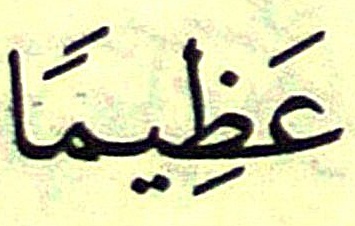 عَظِيمًا